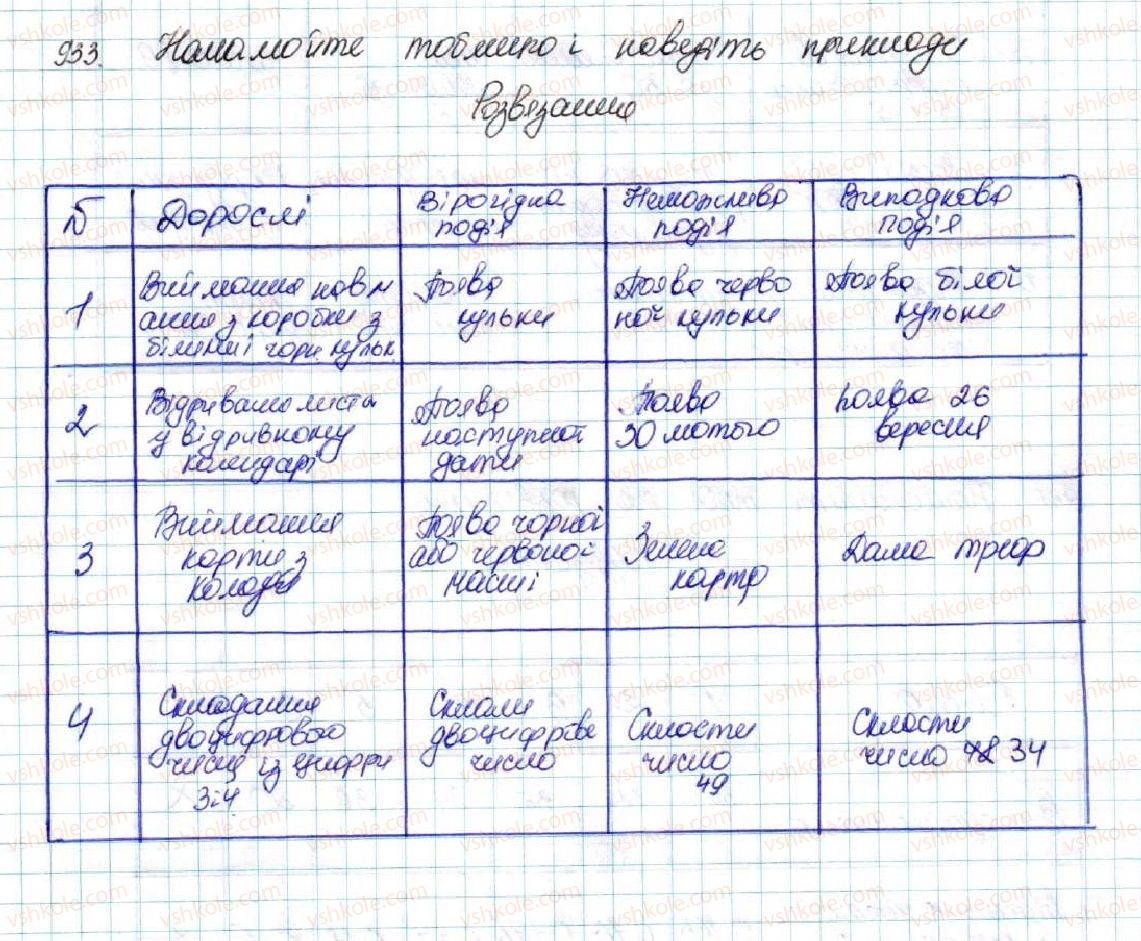 933. Намалюйте таблицю і наведіть приклади
Розвязання
№ Дослід Вірогідна подія Неможлива подія Випадкова подія
1
Виймання навм
ання з коробки з
білими і чорн кульк
Поява
кульки
Поява черво
ної кульки
Поява білої
кульки
2
Відривання листа
у відривному
календарі
Поява
наступної
дати
Поява
30 лютого
Поява 26
вересня
3
Виймання
карти з
колоди
Поява чорної
або червоної
масті
Зелена
карта
Дама треф
4
Складання
двоцифрового
числа із цифри
3 і 4
Склали
двоцифрове
число
Скласти
число
49
Скласти
число 34
vshkole.com